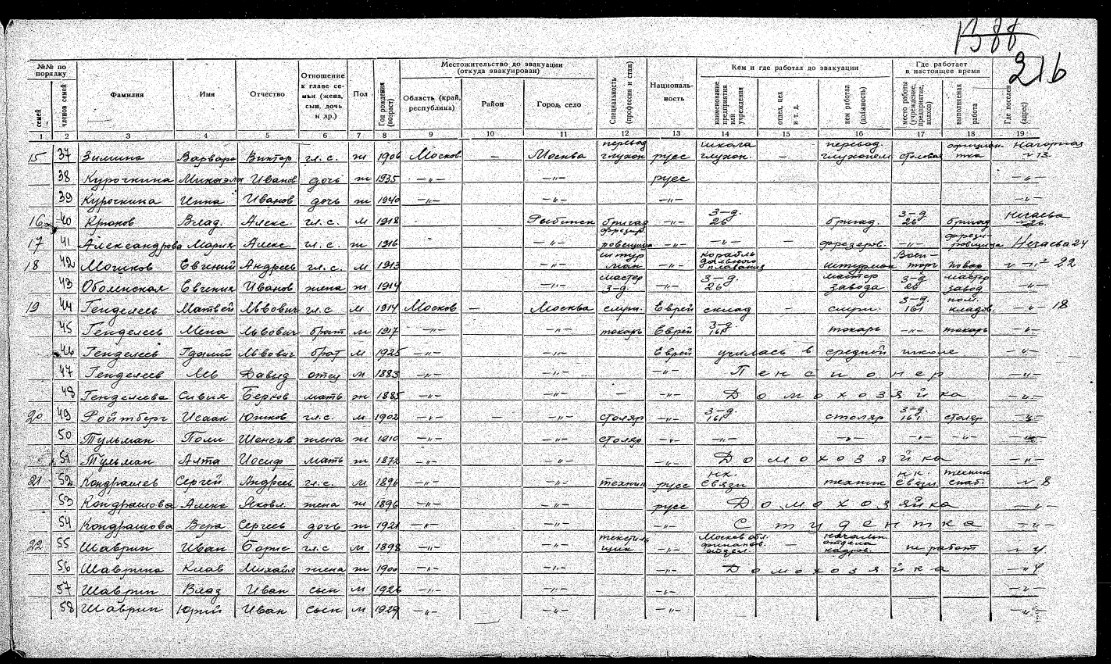 1388
216
№№ по порядку
семей
членов семей
Фамилия
Имя
Отчество
Отношение к главе семьи (жена, сын, дочь и др.)
Пол
Год рождения (возраст)
Местожительство до эвакуации (откуда эвакуирован)
Область (край, республика)
Район
Город, село
Специальность (профессия и стаж)
Национальность
Кем и где работал до эвакуации
наименование предприятия или учреждения
отдел, цех и т. д.
кем работал (должность)
Где работает в настоящее время
место работы (учреждение, предприятие, колхоз)
выполняемая работа
Где поселен (адрес)
1 2 3 4 5 6 7 8 9 10 11 12 13 14 15 16 17 18 19
15 37 Зимина Варвара Виктор гл.с. ж 1906 Москов — Москва перевод глухон русс школа глухон — перевод. глухонем столовая официантка Нагорная 13
38 Курочкина Микаэла Иванов дочь ж 1935 —"— —"— русс —"—
39 Курочкина Инна Иванов дочь ж 1940 —"— —"— —"—
16 40 Крюков Влад. Алекс гл.с. м 1918 Рыбинск бригад —"— 3-д. 26 бригад. 3-д 26 бригад
17 41 Александрова Мария Алекс г.с. ж 1916 —"— фрезеровщица —"— —"— — фрезеров. —"— фрезеровщица 24
18 42 Мошков Евгений Андреев гл.с. м 1913 —"— штурман —"— корабль дальнего плавания штурман Воен-торг 22
43 Оболенская Евгения Иванов жена ж 1914 —"— мастер з-д. —"— 3-д. 26 мастер завода 3-д 26 мастер завод —"—
19 44 Генделев Матвей Львович гл.с м 1914 Москов — Москва служ. Еврей склад — служ. 3-д. 161 пом. кладов 18
45 Генделев Мена Львович брат м 1917 —"— —"— токарь Еврей 3-д 161 токарь —"— токарь —"—
46 Генделев Львович брат м 1925 —"— —"— Еврей училась в средней школе —"—
47 Генделев Лев Давид отец м 1883 —"— —"— —"— Пенсионер —"—
48 Генделева Сивия Берков мать ж 1885 —"— —"— — —"— Домохозяйка —"—
20 49 Ройтберг Исаак гл.с м 1902 —"— — —"— столяр —"— 3-д. 161 — столяр 3-д. 161 столяр —"—
50 Тульман Поли жена ж 1910 —"— —"— столяр —"— —"— — —"— —"— —"—
51 Тульман Алта Иосиф мать ж 1872 —"— —"— —"— Домохозяйка —"—
21 52 Кондрашев Сергей Андреев гл.с. м 1896 —"— —"— техник русс нк. связи техник нк. связи техник снаб. 8
53 Кондрашова Алекс Яковл. жена ж 1896 —"— —"— русс Домохозяйка —"—
54 Кондрашова Вера Сергеев дочь ж 1921 —"— —"— —"— Студентка —"—
22 55 Шаврин Иван Борис гл.с м 1898 —"— —"— текстильщик —"— Москов обл. финансов. отдел — начальн отдела кадров не работ 4
56 Шаврина Клав Михайл жена ж 1900 —"— —"— —"— Домохозяйка 4
57 Шаврин Влад Иван сын м 1926 —"— —"— —"— —"—
58 Шаврин Юрий Иван сын м 1929 —"— —"— —"— —"—